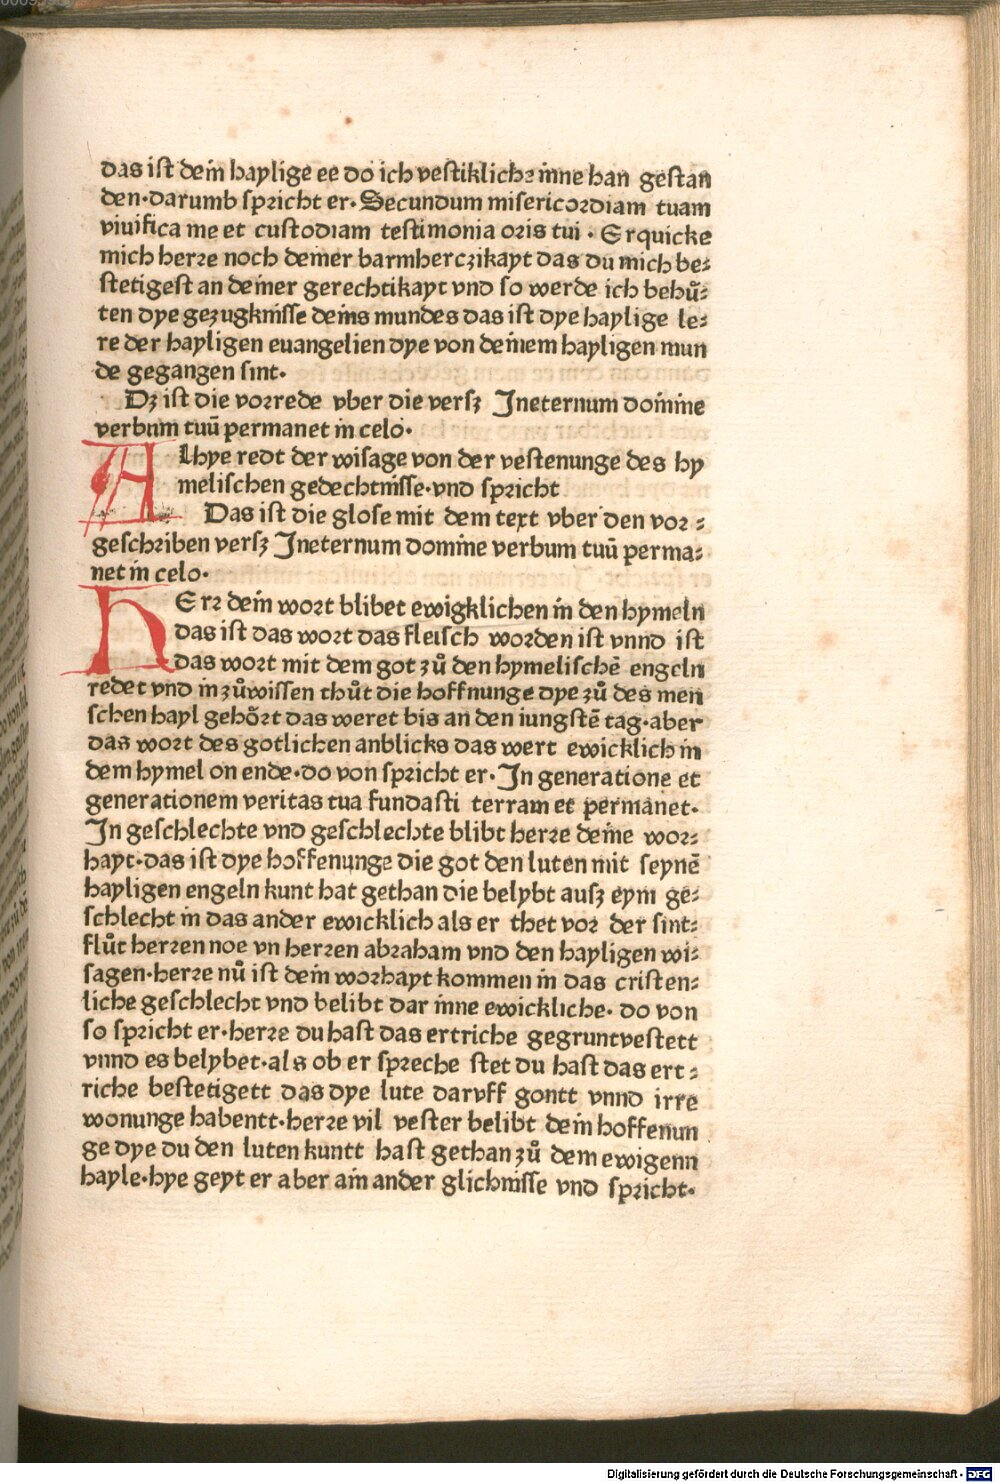 das ist dein haylige ee do ich vestiklichꝛ inne han gestan
den·darumb spꝛicht er·Secundum misericoꝛdiam tuam
viuifica me et custodiam testimonia oris tui·Erquicke
mich herꝛe noch deiner barmherczikayt das du mich be⸗
stetigest an deiner gerechtikayt vnd so werde ich behuͤ⸗
ten dye gezugknisse deins mundes das ist dye haylige le⸗
re der hayligen euangelien dye von deinem hayligen mun
de gegangen sint·
Dz ist die voꝛrede vber die versz Ineternum domine
verbum tuū permanet in celo·
Alhye redt der wisage von der vestenunge des hy
melischen gedechtnisse·vnd spꝛicht
Das ist die glose mit dem text vber den voꝛ⸗
geschꝛiben versz Ineternum domine verbum tuū perma⸗
net in celo·
HErꝛ dein woꝛt blibet ewigklichen in den hymeln
das ist das woꝛt das fleisch woꝛden ist vnnd ist
das woꝛt mit dem got zuͦ den hymelischē engeln
redet vnd in zuͦwissen thuͦt die hoffnunge dye zuͦ des men
schen hayl gehoͤꝛt das weret bis an den iungstē tag·aber
das woꝛt des gotlichen anblicks das wert ewicklich in
dem hymel on ende·do von spꝛicht er·In generatione et
generationem veritas tua fundasti terram et permanet·
In geschlechte vnd geschlechte blibt herꝛe deine woꝛ⸗
hayt·das ist dye hoffenunge die got den luten mit seynē
hayligen engeln kunt hat gethan die belybt ausz eym ge⸗
schlecht in das ander ewicklich als er thet voꝛ der sint⸗
fluͦt herꝛen noe vn herꝛen abꝛaham vnd den hayligen wi⸗
sagen·herꝛe nuͦ ist dein woꝛhayt kommen in das cristen⸗
liche geschlecht vnd belibt dar inne ewickliche·do von
so spꝛicht er·herꝛe du hast das ertriche gegruntvestett
vnnd es belybet·als ob er spꝛeche stet du hast das ert⸗
riche bestetigett das dye lute darvff gontt vnnd irꝛe
wonunge habentt·herꝛe vil vester belibt dein hoffenun
ge dye du den luten kuntt hast gethan zuͦ dem ewigenn
hayle·hye geyt er aber ain ander glichnisse vnd spꝛicht·
Digitalisierung gefördert durch die Deutsche Forschungsgemeinschaft - DFG